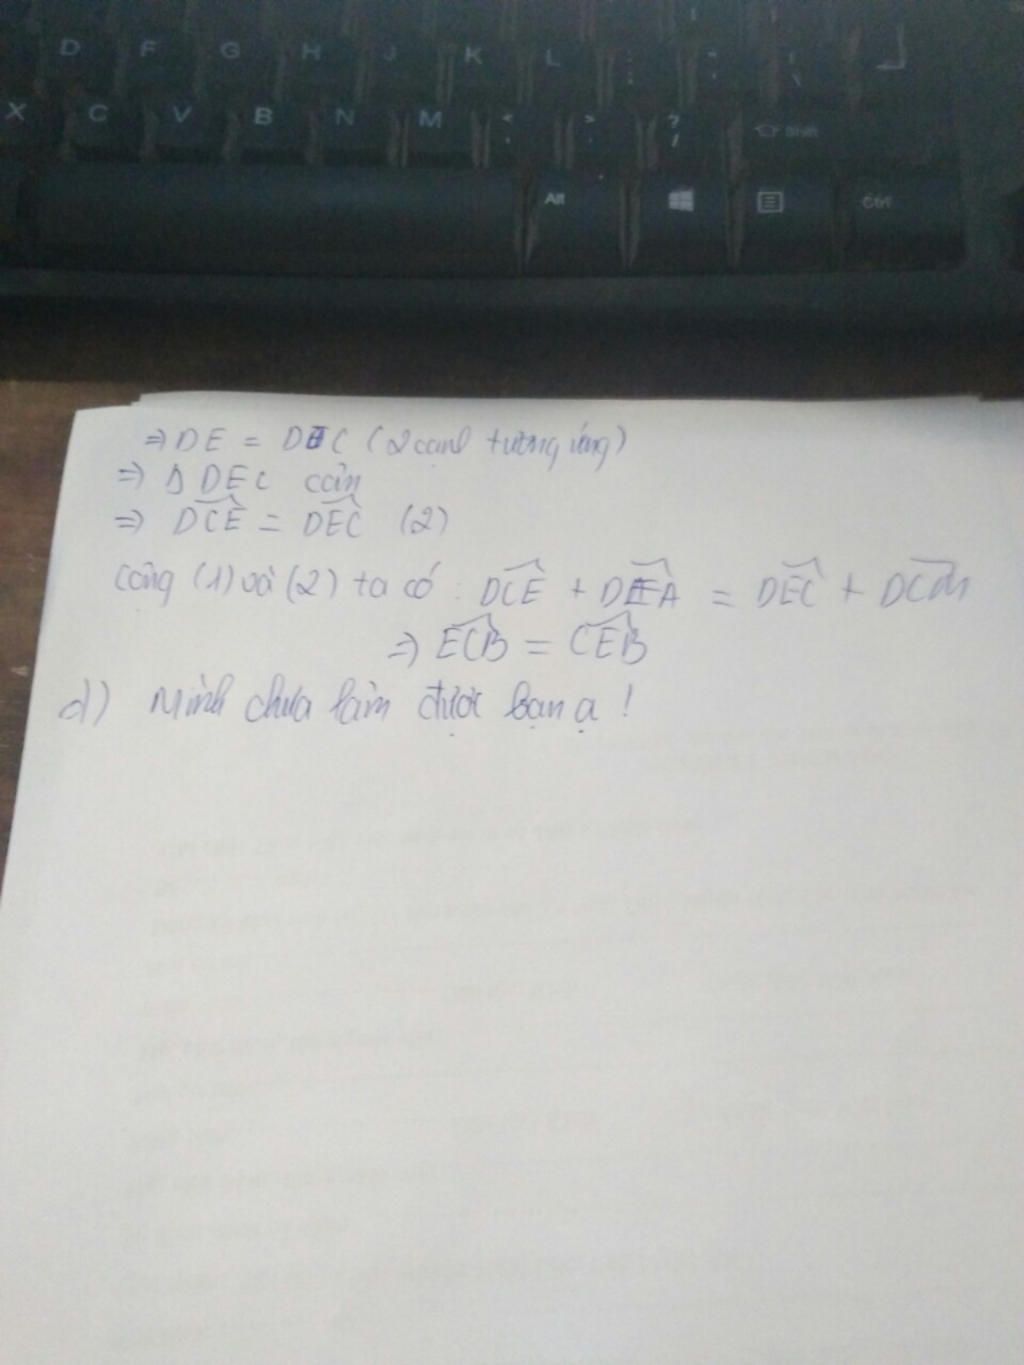 D F G H J K L ; "
X C V B N M < , > . ? / Shift
Alt Ctrl
⇒ DE = DC (2 cạnh tương ứng)
⇒ Δ DEC cân
⇒ DCE = DEC (2)
Cộng (1) và (2) ta có : DCE + DEA = DEC + DCM
⇒ ECB = CEB
d) Mình chưa làm được bạn ạ !